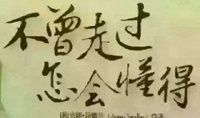 不曾走过
怎会懂得